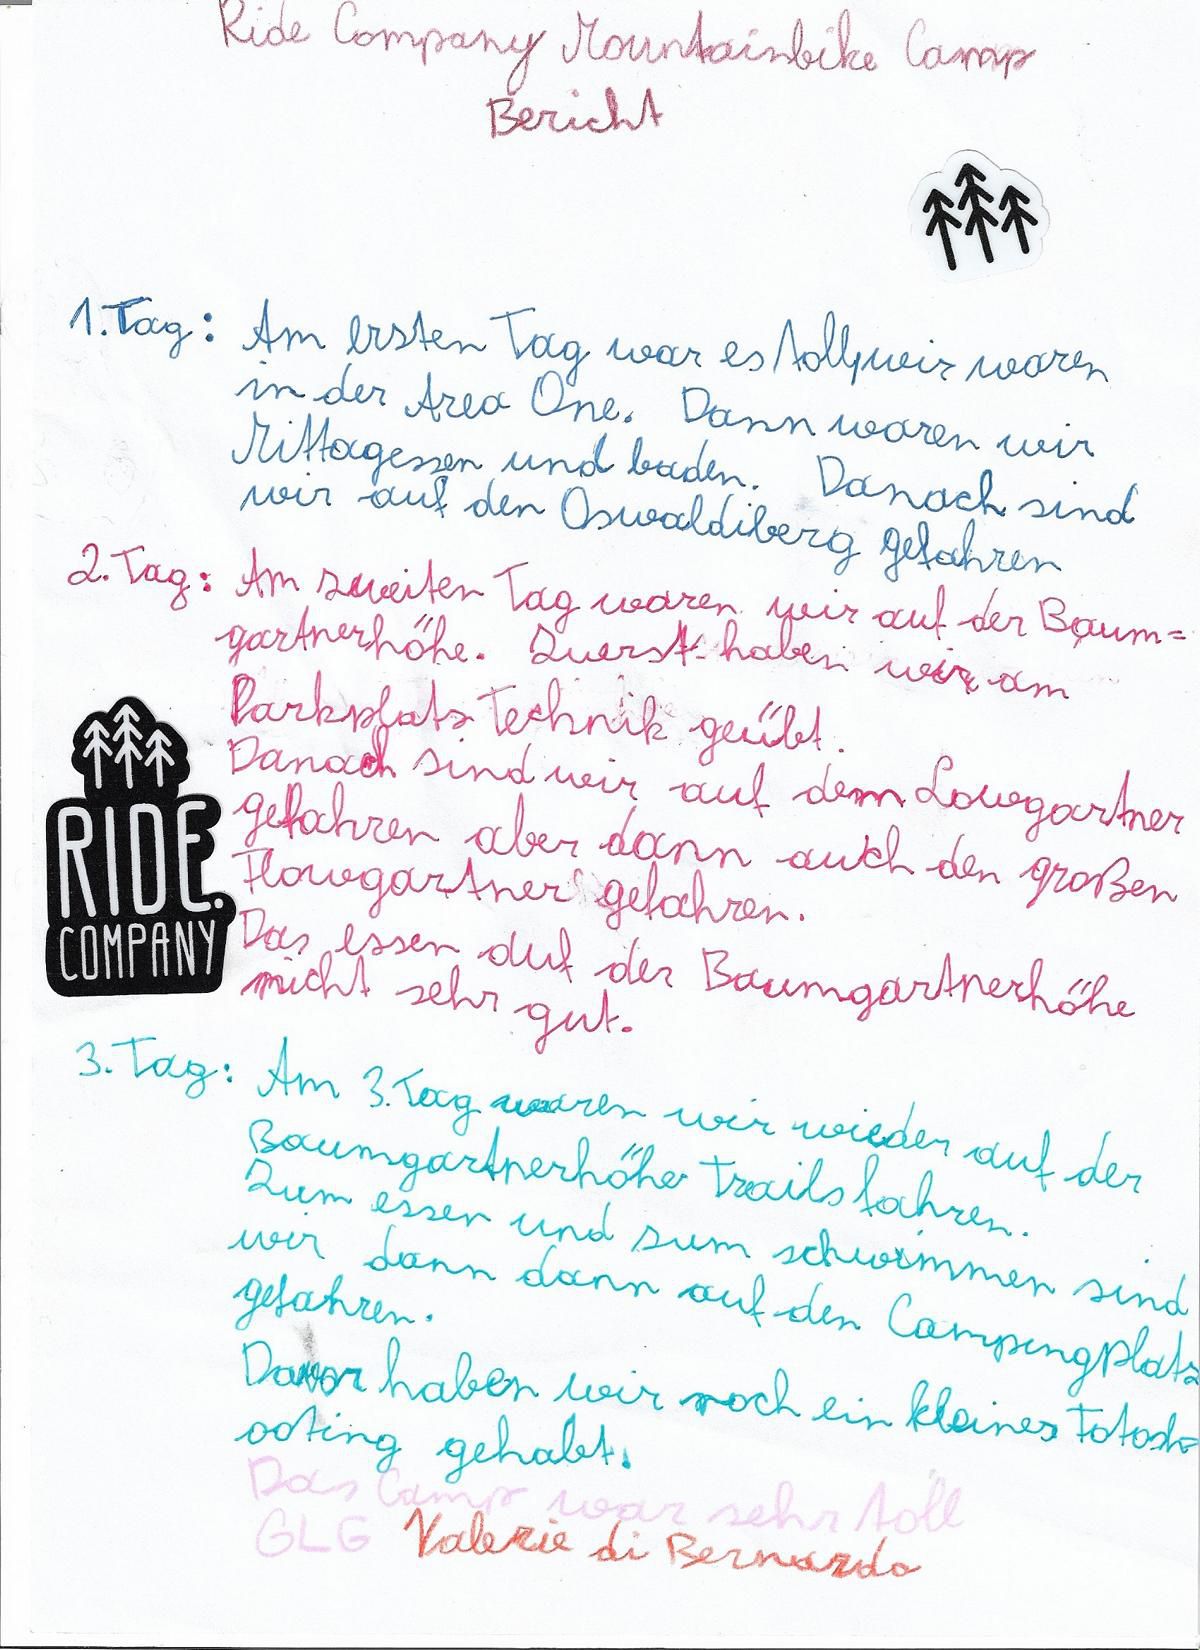 Ride Company Mountainbike Camp
Bericht
1. Tag: Am ersten Tag war es toll, wir waren
in der Area One. Dann waren wir
Mittagessen und baden. Danach sind
wir auf den Oswaldiberg gefahren
2. Tag: Am zweiten Tag waren wir auf der Baum=
gartnerhöhe. Zuerst haben wir am
Parkplatz Technik geübt.
Danach sind wir auf dem Lowgartner
gefahren aber dann auch den großen
Flowgartner gefahren.
RIDE.
COMPANY
Das essen auf der Baumgartnerhöhe
nicht sehr gut.
3. Tag: Am 3. Tag waren wir wieder auf der
Baumgartnerhöhe Trails fahren.
Zum essen und zum schwimmen sind
wir dann dann auf den Campingplatz
gefahren.
Davor haben wir noch ein kleines Fotosh=
ooting gehabt.
Das Camp war sehr toll
GLG Valerie di Bernardo